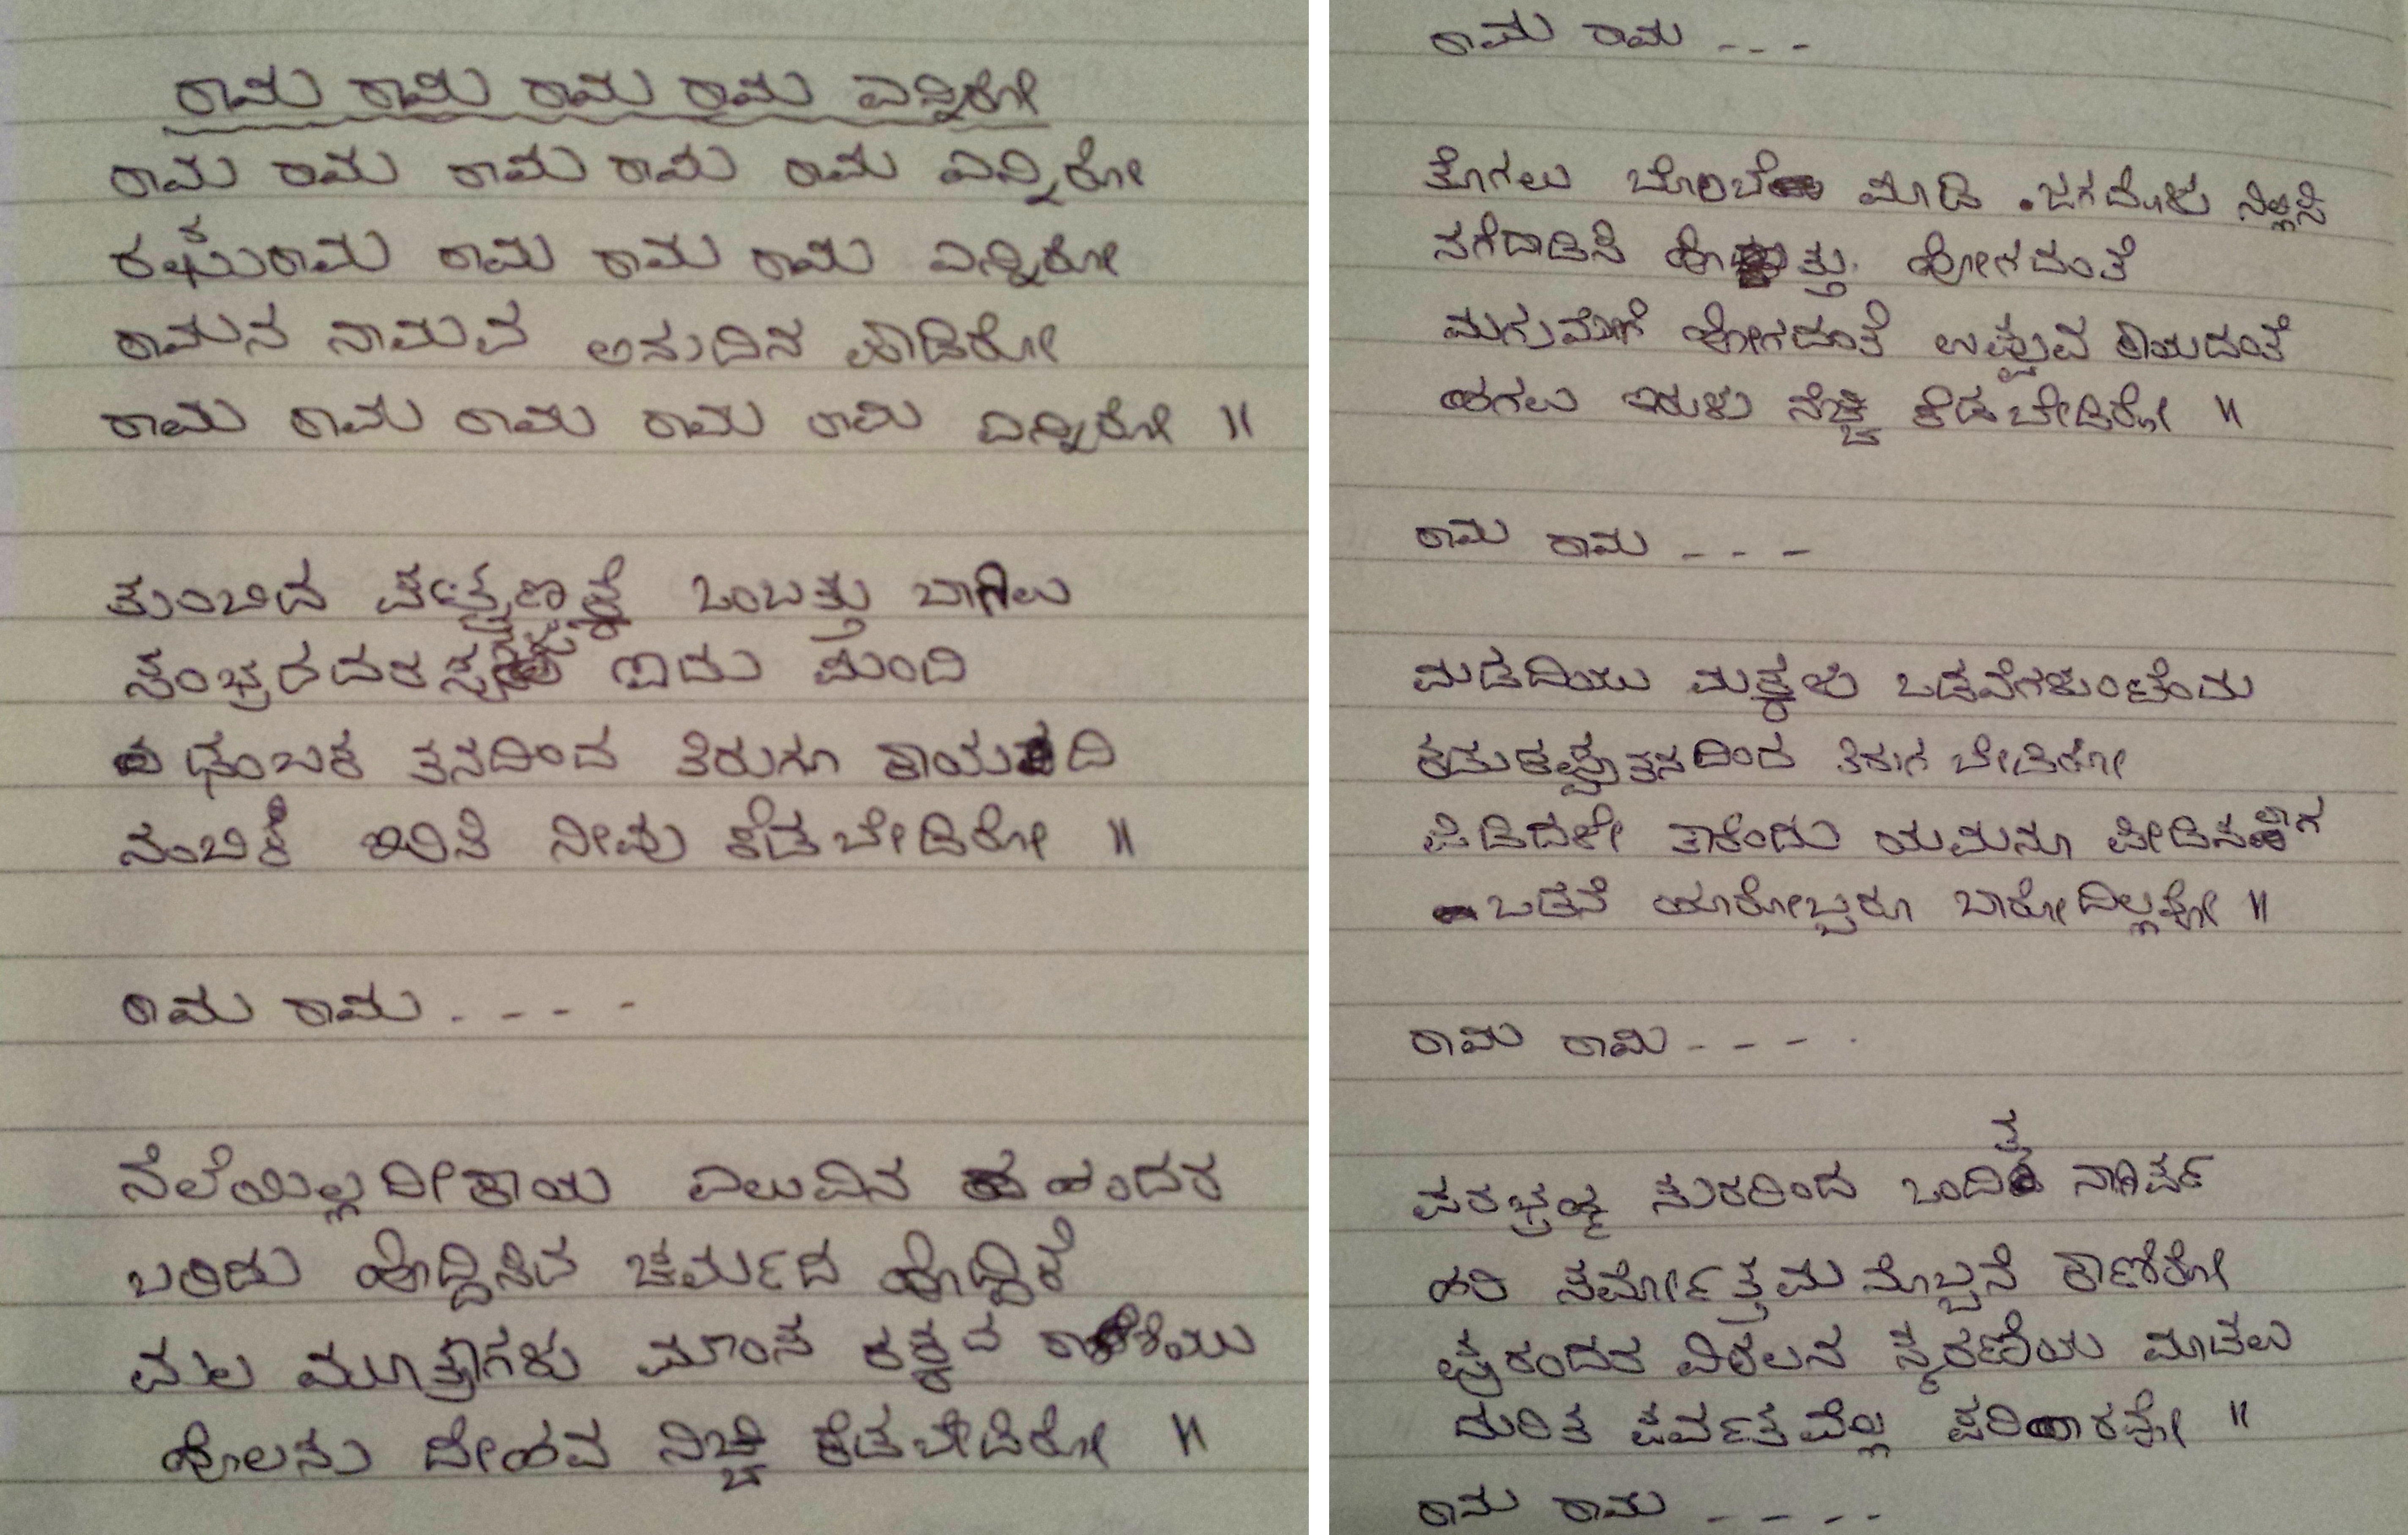 ರಾಮ ರಾಮ ರಾಮ ರಾಮ ಎನ್ನಿರೋ
ರಾಮ ರಾಮ ರಾಮ ರಾಮ ರಾಮ ಎನ್ನಿರೋ
ರಘುರಾಮ ರಾಮ ರಾಮ ರಾಮ ಎನ್ನಿರೋ
ರಾಮನ ನಾಮವ ಅನುದಿನ ಪಾಡಿರೋ
ರಾಮ ರಾಮ ರಾಮ ರಾಮ ರಾಮ ಎನ್ನಿರೋ ||
ತುಂಬಿದ ಪಟ್ಟಣಕ್ಕೆ ಒಂಬತ್ತು ಬಾಗಿಲು
ಇದು ಮಂದಿ
ಡಂಬಕ ತನದಿಂದ ತಿರುಗೂ ಕಾಯದಿ
ನಂಬಿಕೆ ಇರಿಸಿ ನೀವು ಕೆಡಬೇಡಿರೋ ||
ರಾಮ ರಾಮ . - - -
ನೆಲೆಯಿಲ್ಲದೀಕಾಯ ಎಲುವಿನ ಹಂದರ
ಬರಿದು ಹೊದ್ದಿಸಿದ ಚರ್ಮದ ಹೊದ್ದಿಕೆ
ಮಲ ಮೂತ್ರಾಗಳು ಮಾಂಸ ರಕ್ತದ
ಹೊಲಸು ದೇಹವ ನಿಚ್ಚಿ ಕೆಡಬೇಡಿರೋ ||
ರಾಮ ರಾಮ - - -
ತೊಗಲು ಬೊಂಬೆ ಮಾಡಿ ಜಗದೊಳು ನಿಲ್ಲಿಸಿ
ನಗೆದಾಡಿಸಿ ಹೊತ್ತು ಹೋಗದಂತೆ
ಮಗುಮೊಗೆ ಹೋಗದಂತೆ ಉಪ್ಪುವ ಕಾಯದಂತೆ
ಹಗಲು ಇರುಳು ನೆಚ್ಚಿ ಕೆಡಬೇಡಿರೋ ||
ರಾಮ ರಾಮ - - -
ಮಡದಿಯು ಮಕ್ಕಳು ಒಡವೆಗಳುಂಟೆಂದು
ಕಡುಕಪ್ಪುತನದಿಂದ ತಿರುಗ ಬೇಡಿರೋ
ಪಿಡಿದಳೇ ತಾಕೆಂದು ಯಮನೂ ಪೀಡಿಸುವಾಗ
ಒಡನೆ ಯಾರೋಬ್ಬರೂ ಬಾರೋದಿಲ್ಲವೋ ||
ರಾಮ ರಾಮ - - - .
ಪರಬ್ರಹ್ಮ ಸುರರಿಂದ
ಹರಿ ಸರ್ವೋತ್ತಮ ನೊಬ್ಬನೆ ಕಾಣಿರೋ
ಪುರಂದರ ವಿಠಲನ ಸ್ಮರಣೆಯ ಮಾಡಲು
ದುರಿತ ಪರ್ವತವೆಲ್ಲ ಪರಿಹಾರವೋ ||
ರಾಮ ರಾಮ - - - -